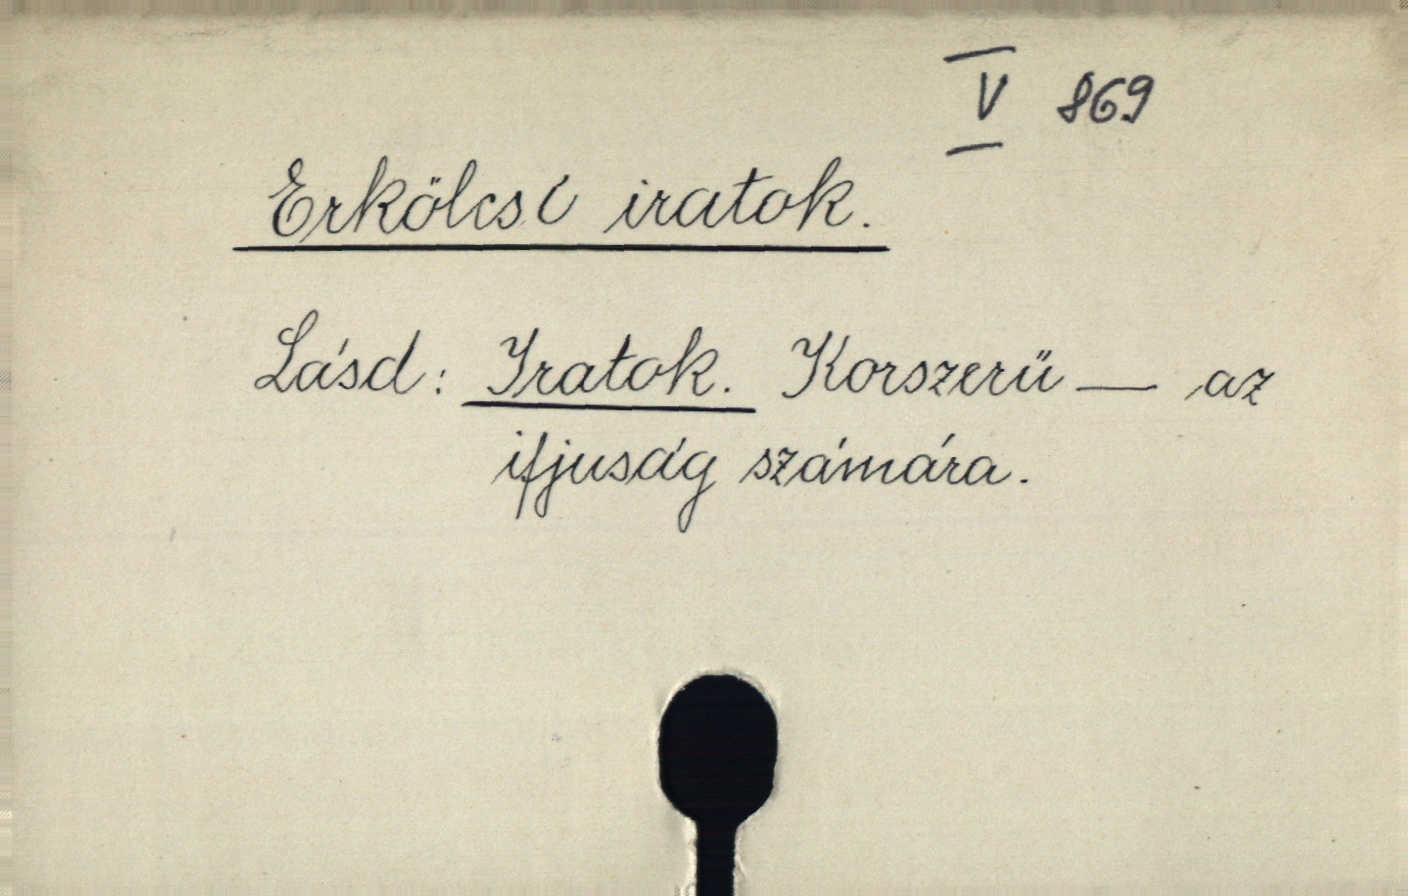 V 869
Erkölcsi iratok.
Lásd: Iratok. Korszerű — az
ifjuság számára.